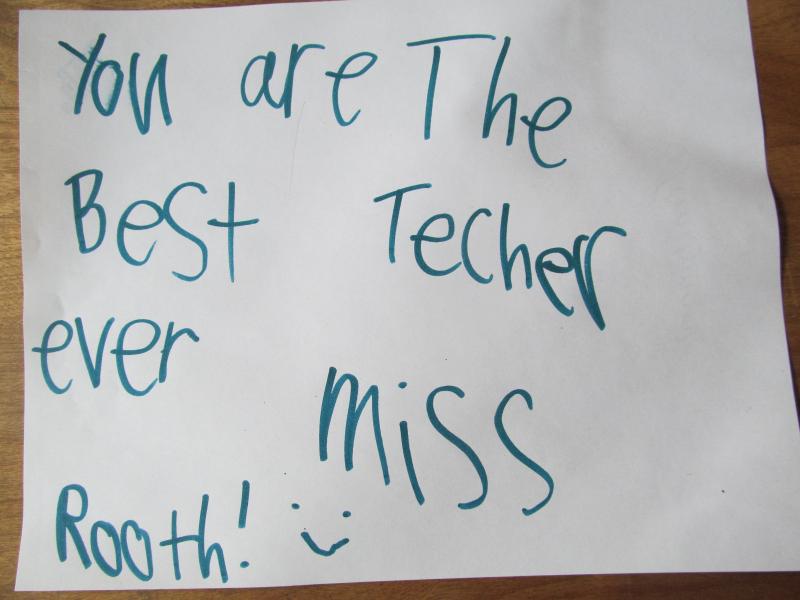 You are The
Best Techer
ever
miss
Rooth!